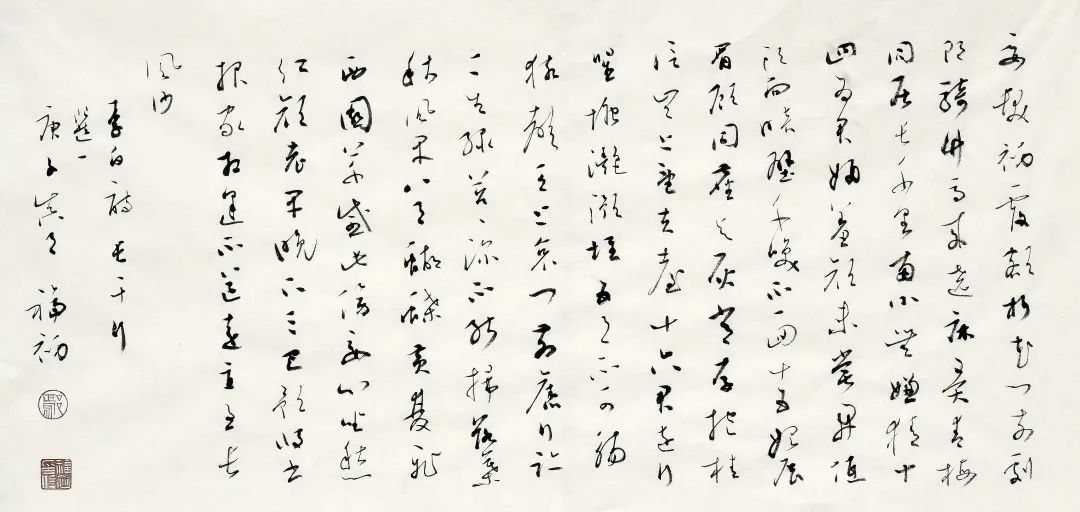 妾發初覆額折花門前劇
郎騎竹馬來遶床弄青梅
同居長干里兩小無嫌猜十
四為君婦羞顏未嘗開低
頭向暗壁千喚不一回十五始展
眉願同塵與灰常存抱柱
信豈上望夫臺十六君遠行
瞿塘灩澦堆五月不可觸
猿聲天上哀門前舊行跡
一一生綠苔苔深不能掃落葉
秋風早八月蝴蝶黃雙飛
西園草感此傷妾心坐愁
紅顏老早晚下三巴預將書
報家相迎不道遠直至長
風沙
李白詩長干行
選一
庚子月福初